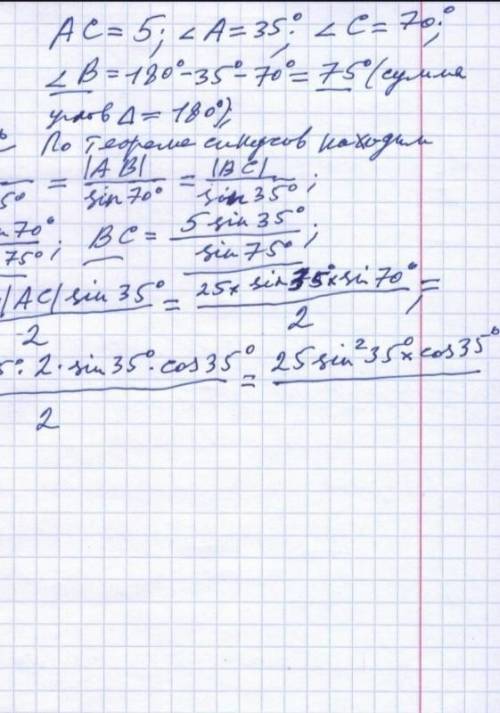 AC = 5; ∠A = 35°; ∠C = 70°;
∠B = 180° - 35° - 70° = 75° (сумма
углов Δ = 180°);
По теореме синусов находим
5° = |AB| / sin 70° = |BC| / sin 35° ;
70° / 75° ; BC = 5 sin 35° / sin 75° ;
|AC| sin 35° / 2 = 25 x sin 35° x sin 70° / 2 ; =
5° · 2 · sin 35° · cos 35° / 2 = 25 sin² 35° x cos 35°